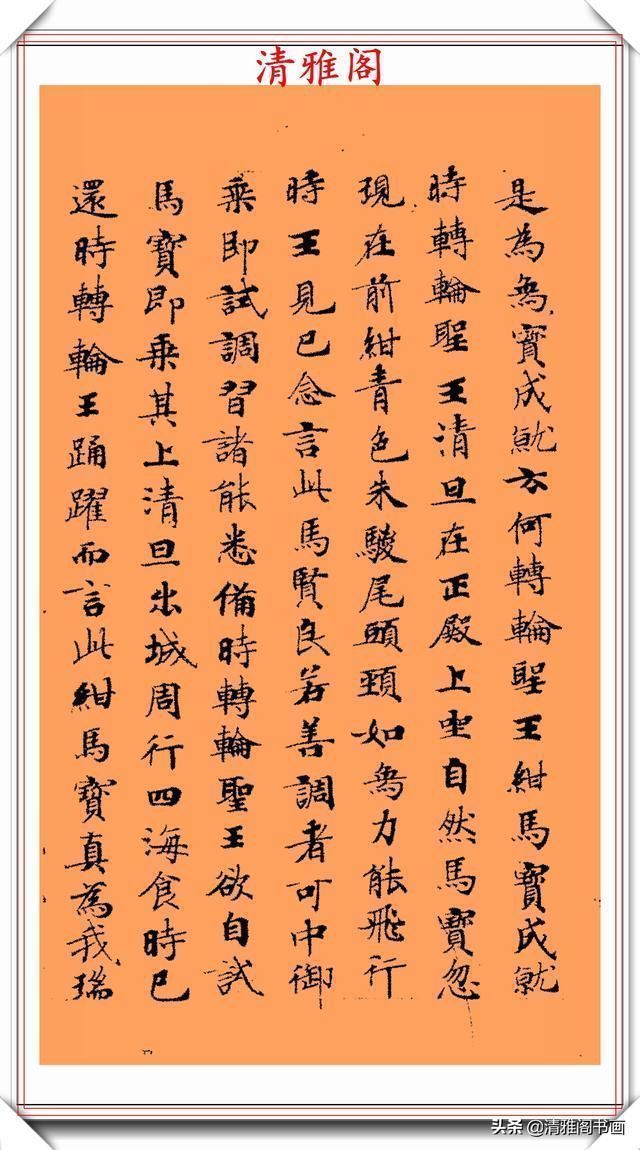 清雅阁
是為象寶成就云何轉輪聖王紺馬寶成就
時轉輪聖王清旦在正殿上坐自然馬寶忽
現在前紺青色朱駿尾頭頸如象力能飛行
時王見已念言此馬賢良若善調者可中御
乘即試調習諸能悉備時轉輪聖王欲自試
馬寶即乘其上清旦出城周行四海食時已
還時轉輪王踊躍而言此紺馬寶真為我瑞
头条 @清雅阁书画